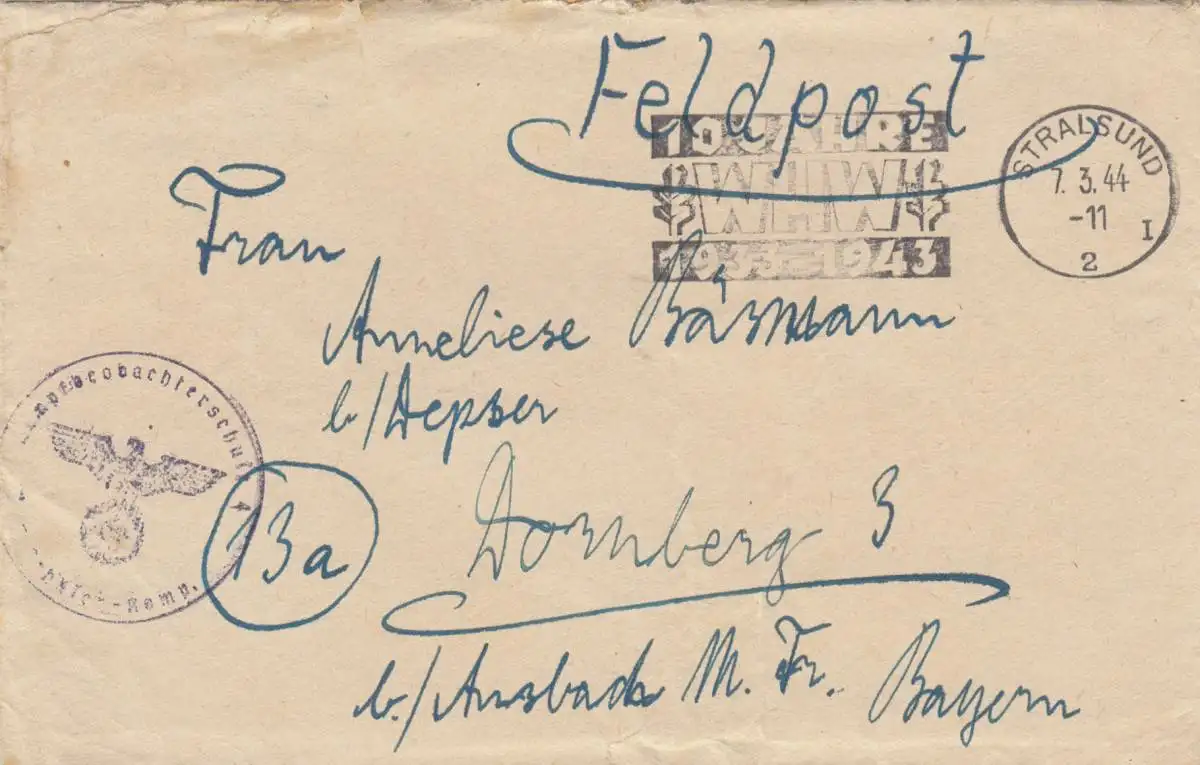 Feldpost
10 JAHRE
WHW
1933-1943
STRALSUND
7. 3. 44
-11
I
2
Frau
Anneliese
b/Depser
13a
Dornberg 3
b./Ansbach M. Fr. Bayern
-Komp.